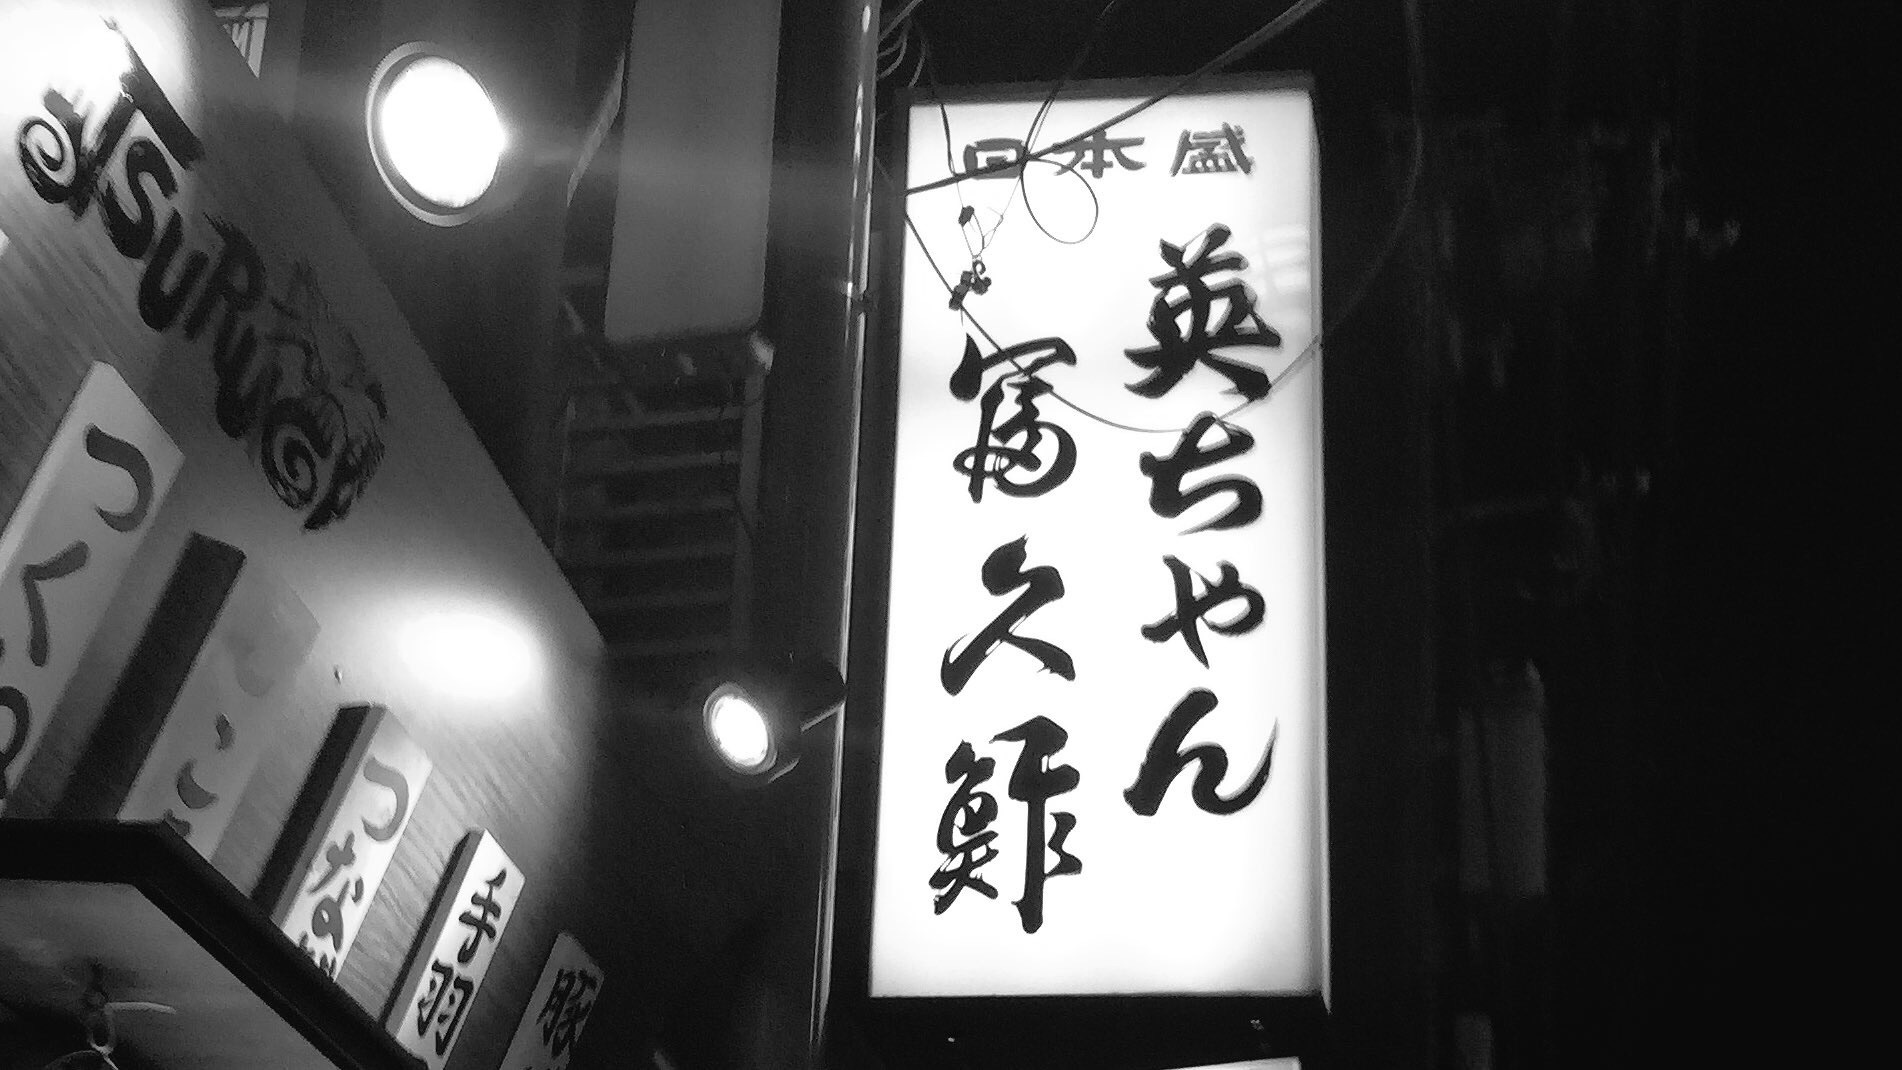 日本盛
英ちゃん
冨久鮓
TSURUGI
つくね
つなぎ
手羽
豚